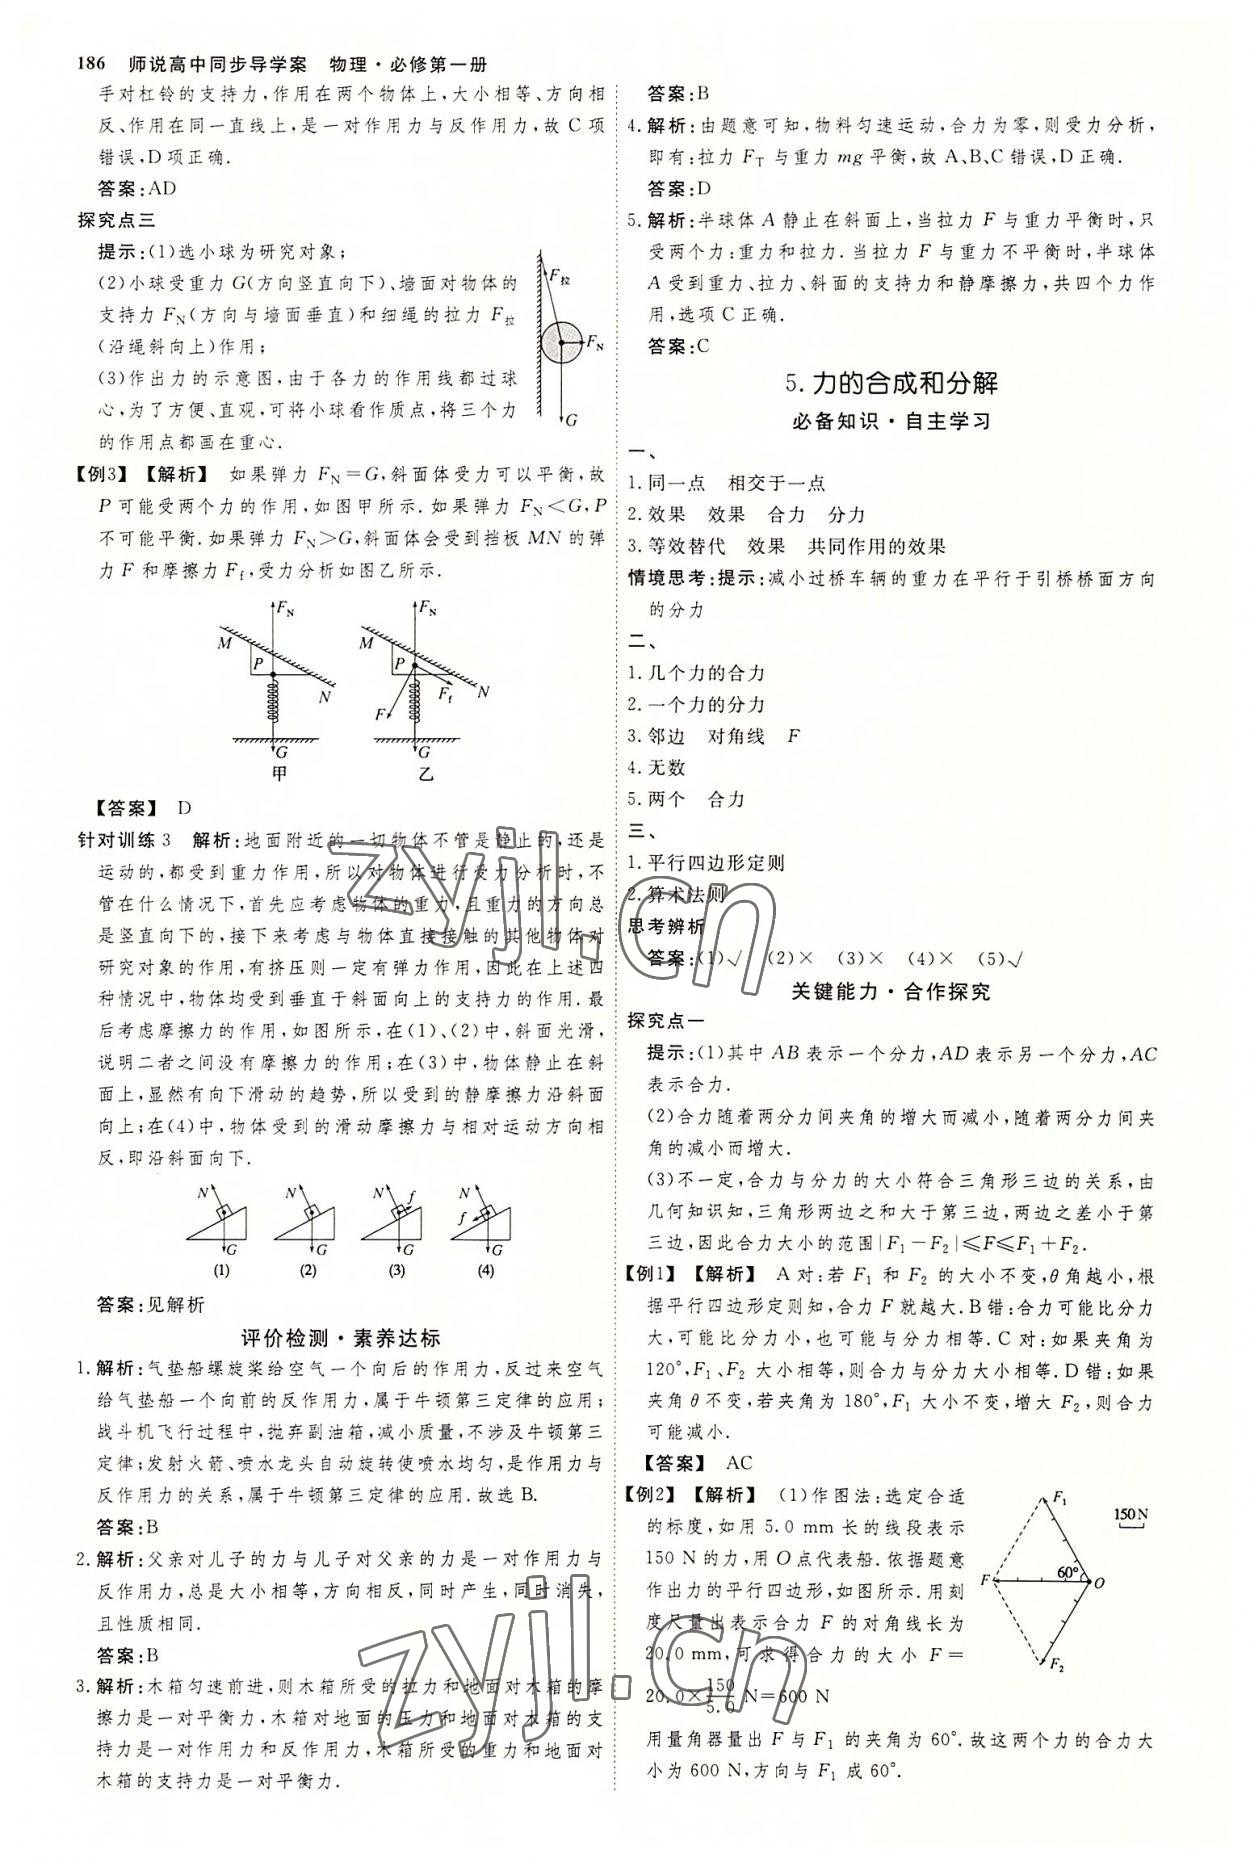 186 师说高中同步导学案 物理·必修第一册
手对杠铃的支持力,作用在两个物体上,大小相等、方向相
反、作用在同一直线上,是一对作用力与反作用力,故 C 项
错误,D 项正确.
答案:AD
探究点三
提示:(1)选小球为研究对象;
(2)小球受重力 G(方向竖直向下)、墙面对物体的
支持力 F_N(方向与墙面垂直)和细绳的拉力 F_拉
(沿绳斜向上)作用;
(3)作出力的示意图,由于各力的作用线都过球
心,为了方便、直观,可将小球看作质点,将三个力
的作用点都画在重心.
F_拉
F_N
G
【例3】【解析】 如果弹力 F_N=G,斜面体受力可以平衡,故
P 可能受两个力的作用,如图甲所示.如果弹力 F_N<G,P
不可能平衡.如果弹力 F_N>G,斜面体会受到挡板 MN 的弹
力 F 和摩擦力 F_f,受力分析如图乙所示.
F_N F_N
M M
P P
N F F_f N
G G
甲 乙
【答案】 D
针对训练 3 解析:地面附近的一切物体不管是静止的,还是
运动的,都受到重力作用,所以对物体进行受力分析时,不
管在什么情况下,首先应考虑物体的重力,且重力的方向总
是竖直向下的,接下来考虑与物体直接接触的其他物体对
研究对象的作用,有挤压则一定有弹力作用,因此在上述四
种情况中,物体均受到垂直于斜面向上的支持力的作用.最
后考虑摩擦力的作用,如图所示,在(1)、(2)中,斜面光滑,
说明二者之间没有摩擦力的作用;在(3)中,物体静止在斜
面上,显然有向下滑动的趋势,所以受到的静摩擦力沿斜面
向上;在(4)中,物体受到的滑动摩擦力与相对运动方向相
反,即沿斜面向下.
N N N f N f
G G G G
(1) (2) (3) (4)
答案:见解析
评价检测·素养达标
1.解析:气垫船螺旋桨给空气一个向后的作用力,反过来空气
给气垫船一个向前的反作用力,属于牛顿第三定律的应用;
战斗机飞行过程中,抛弃副油箱,减小质量,不涉及牛顿第三
定律;发射火箭、喷水龙头自动旋转使喷水均匀,是作用力与
反作用力的关系,属于牛顿第三定律的应用.故选 B.
答案:B
2.解析:父亲对儿子的力与儿子对父亲的力是一对作用力与
反作用力,总是大小相等,方向相反,同时产生,同时消失,
且性质相同.
答案:B
3.解析:木箱匀速前进,则木箱所受的拉力和地面对木箱的摩
擦力是一对平衡力,木箱对地面的压力和地面对木箱的支
持力是一对作用力和反作用力,木箱所受的重力和地面对
木箱的支持力是一对平衡力.
答案:B
4.解析:由题意可知,物料匀速运动,合力为零,则受力分析,
即有:拉力 F_T 与重力 mg 平衡,故 A、B、C 错误,D 正确.
答案:D
5.解析:半球体 A 静止在斜面上,当拉力 F 与重力平衡时,只
受两个力:重力和拉力.当拉力 F 与重力不平衡时,半球体
A 受到重力、拉力、斜面的支持力和静摩擦力,共四个力作
用,选项 C 正确.
答案:C
5.力的合成和分解
必备知识·自主学习
一、
1.同一点 相交于一点
2.效果 效果 合力 分力
3.等效替代 效果 共同作用的效果
情境思考:提示:减小过桥车辆的重力在平行于引桥桥面方向
的分力
二、
1.几个力的合力
2.一个力的分力
3.邻边 对角线 F
4.无数
5.两个 合力
三、
1.平行四边形定则
2.算术法则
思考辨析
答案:(1)√ (2)× (3)× (4)× (5)√
关键能力·合作探究
探究点一
提示:(1)其中 AB 表示一个分力,AD 表示另一个分力,AC
表示合力.
(2)合力随着两分力间夹角的增大而减小,随着两分力间夹
角的减小而增大.
(3)不一定,合力与分力的大小符合三角形三边的关系,由
几何知识知,三角形两边之和大于第三边,两边之差小于第
三边,因此合力大小的范围|F₁-F₂|≤F≤F₁+F₂.
【例1】【解析】 A 对:若 F₁ 和 F₂ 的大小不变,θ角越小,根
据平行四边形定则知,合力 F 就越大.B 错:合力可能比分力
大,可能比分力小,也可能与分力相等.C 对:如果夹角为
120°,F₁、F₂ 大小相等,则合力与分力大小相等.D 错:如果
夹角θ不变,若夹角为 180°,F₁ 大小不变,增大 F₂,则合力
可能减小.
【答案】 AC
【例2】【解析】 (1)作图法:选定合适
的标度,如用 5.0 mm 长的线段表示
150 N 的力,用 O 点代表船.依据题意
作出力的平行四边形,如图所示.用刻
度尺量出表示合力 F 的对角线长为
20.0 mm,可求得合力的大小 F=
20.0×150/5.0 N=600 N
F₁
150 N
60°
F
O
F₂
用量角器量出 F 与 F₁ 的夹角为 60°.故这两个力的合力大
小为 600 N,方向与 F₁ 成 60°.
zyjl.cn
zyjl.cn